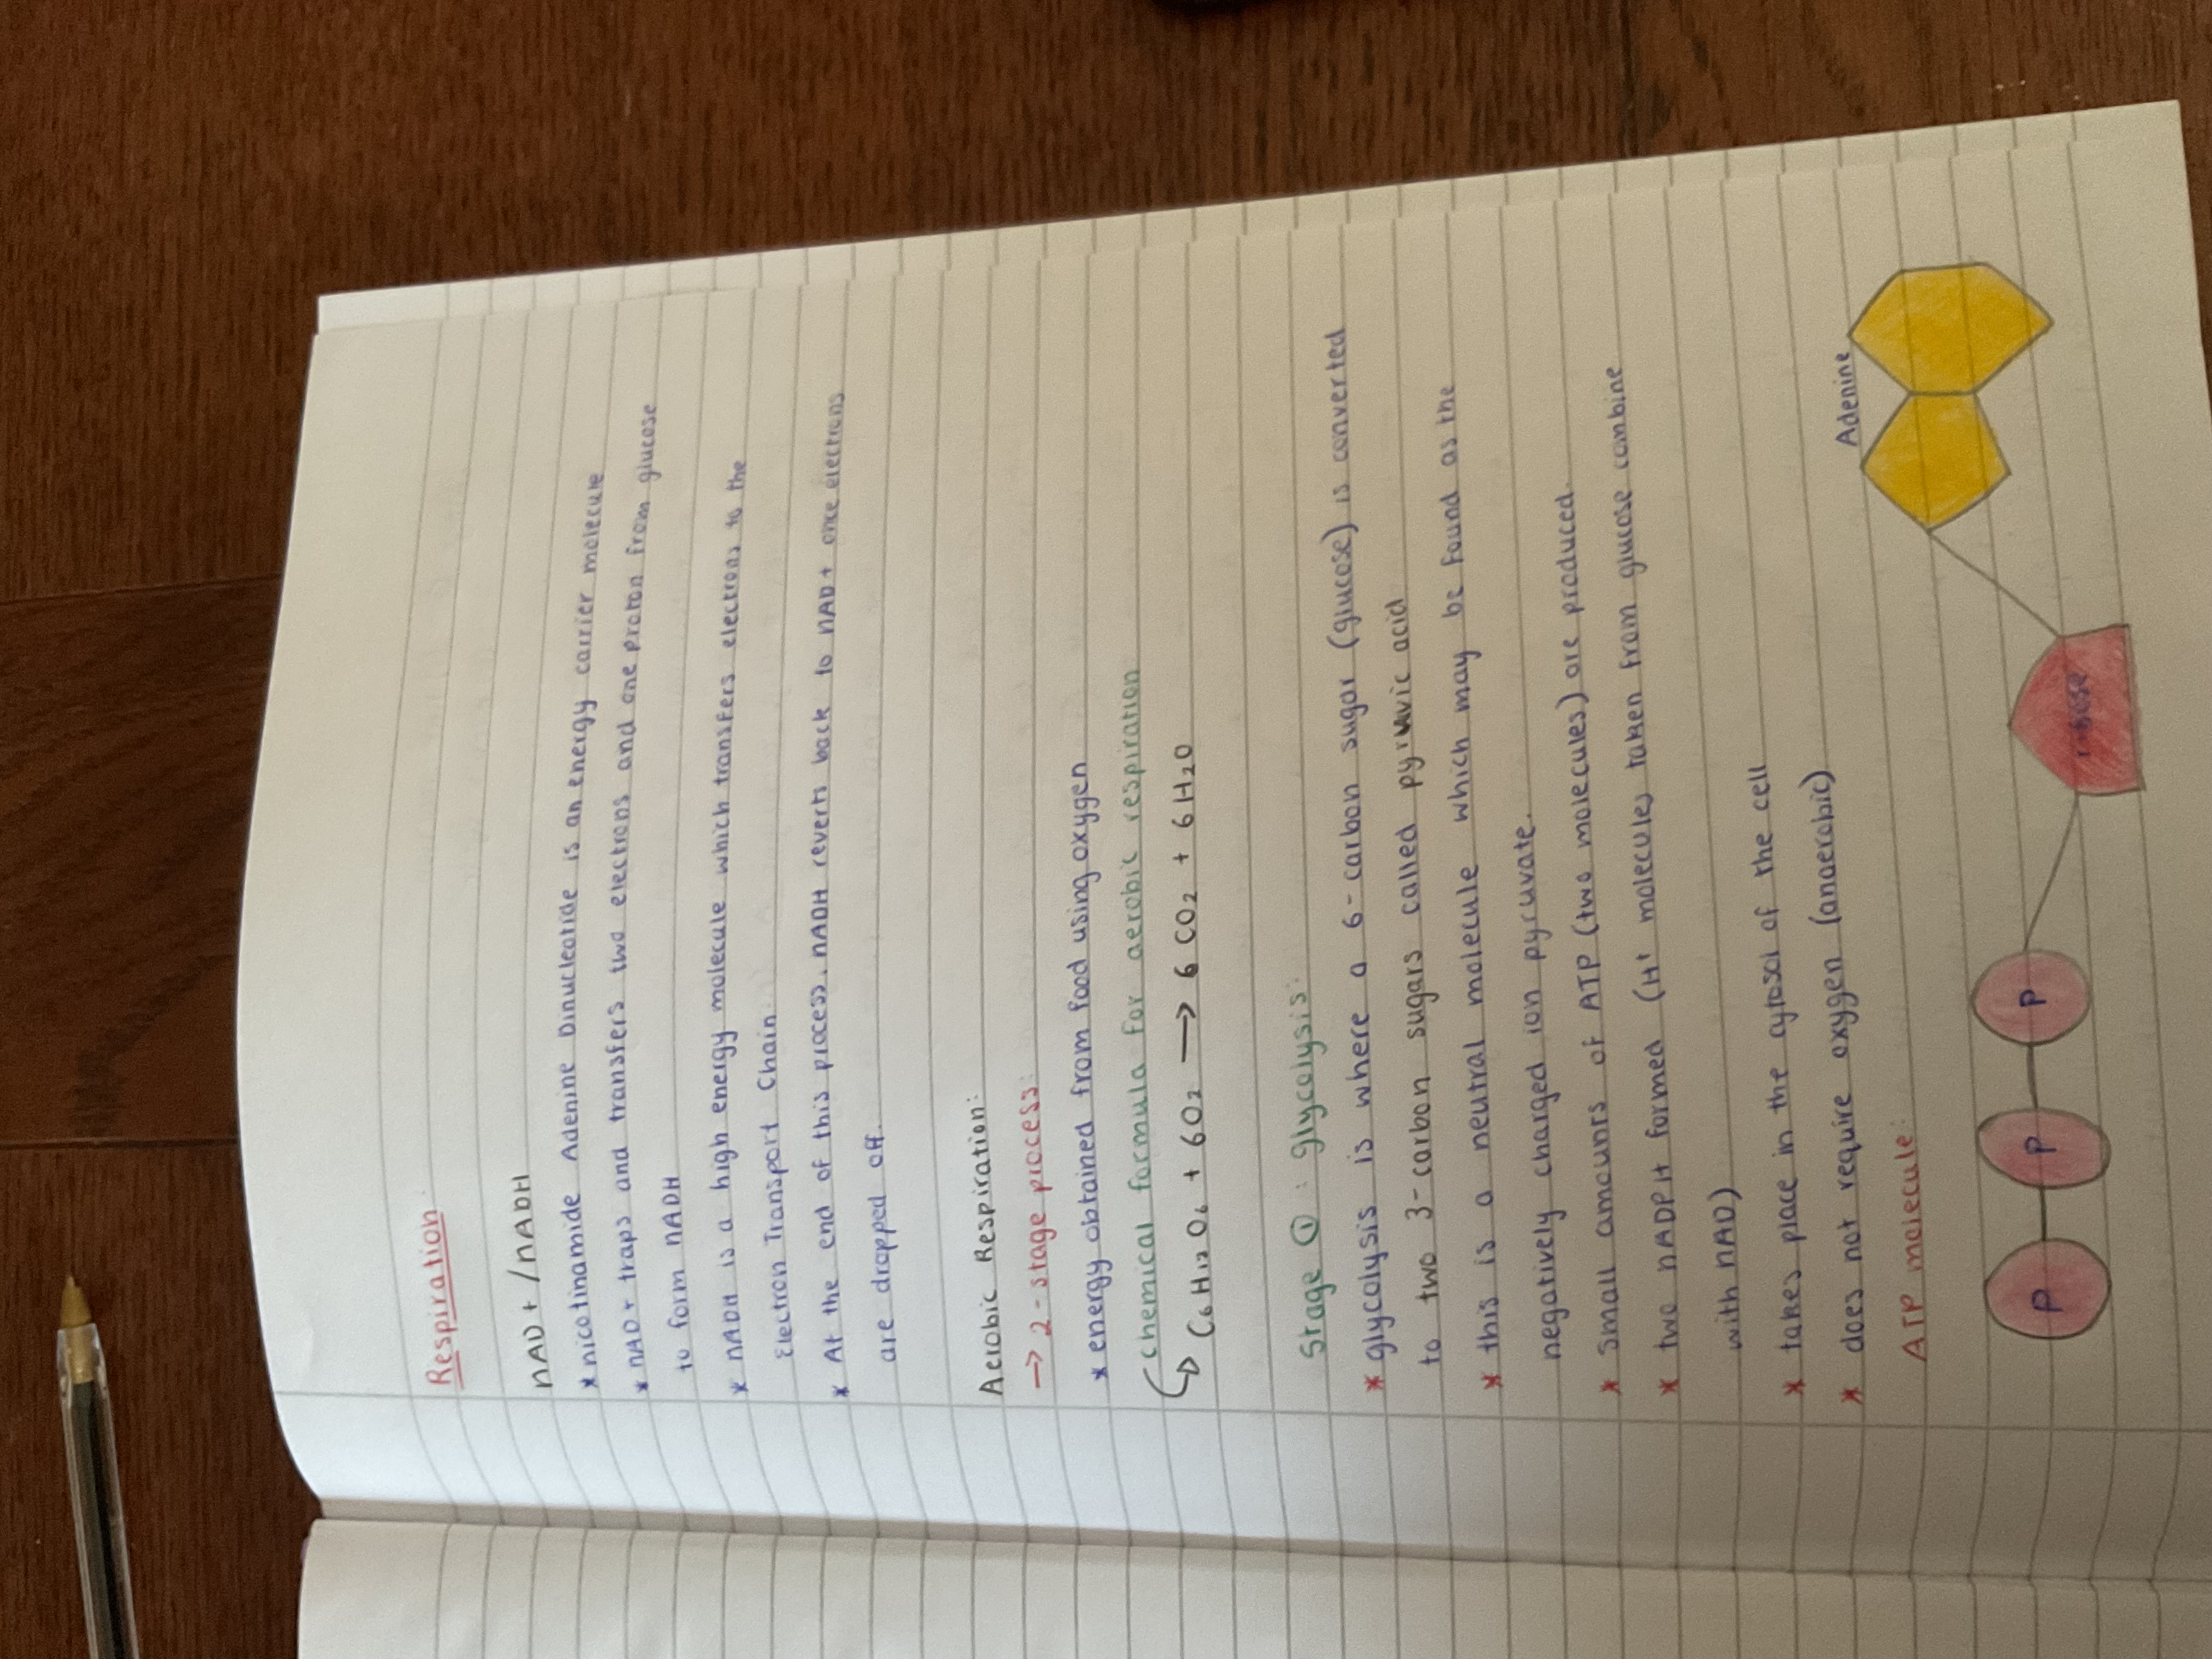 Respiration:
nAD+ / nADH
* nicotinamide Adenine Dinucleotide is an energy carrier molecule
* nAD+ traps and transfers two electrons and one proton from glucose
to form nADH
* nADH is a high energy molecule which transfers electrons to the
Electron Transport Chain.
* At the end of this process, nADH reverts back to nAD+ once electrons
are dropped off.
Aerobic Respiration:
→ 2-stage process:
* energy obtained from food using oxygen
chemical formula for aerobic respiration
↳ C6H12O6 + 6O2 → 6CO2 + 6H2O
Stage ①: glycolysis:
* glycolysis is where a 6-carbon sugar (glucose) is converted
to two 3-carbon sugars called pyruvic acid
* this is a neutral molecule which may be found as the
negatively charged ion pyruvate.
* small amounts of ATP (two molecules) are produced.
* two nADPH formed (H+ molecules taken from glucose combine
with nAD)
* takes place in the cytosol of the cell
* does not require oxygen (anaerobic)
ATP molecule:
Adenine
P P P ribose